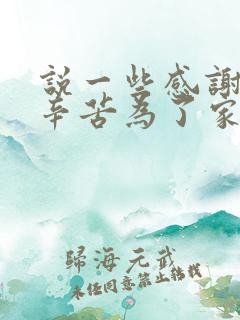 説一些感謝
辛苦為了家
歸海元武
未经同意禁止转载